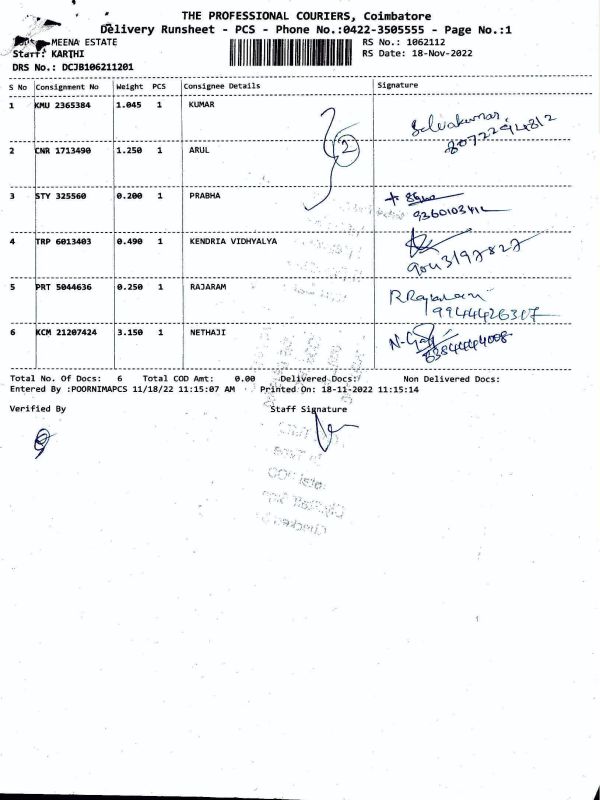 THE PROFESSIONAL COURIERS, Coimbatore
Delivery Runsheet - PCS - Phone No.:0422-3505555 - Page No.:1
MEENA ESTATE RS No.: 1062112
Staff: KARTHI RS Date: 18-Nov-2022
DRS No.: DCJB106211201
S No Consignment No Weight PCS Consignee Details Signature
1 KMU 2365384 1.045 1 KUMAR Selvakumar
8072294812
2 CNR 1713490 1.250 1 ARUL 2
3 STY 325560 0.200 1 PRABHA
4 TRP 6013403 0.490 1 KENDRIA VIDHYALYA
9043197827
5 PRT 5044636 0.250 1 RAJARAM R Rajaram
9944426307
6 KCM 21207424 3.150 1 NETHAJI
Total No. Of Docs: 6 Total COD Amt: 0.00 Delivered Docs: Non Delivered Docs:
Entered By :POORNIMAPCS 11/18/22 11:15:07 AM Printed On: 18-11-2022 11:15:14
Verified By Staff Signature